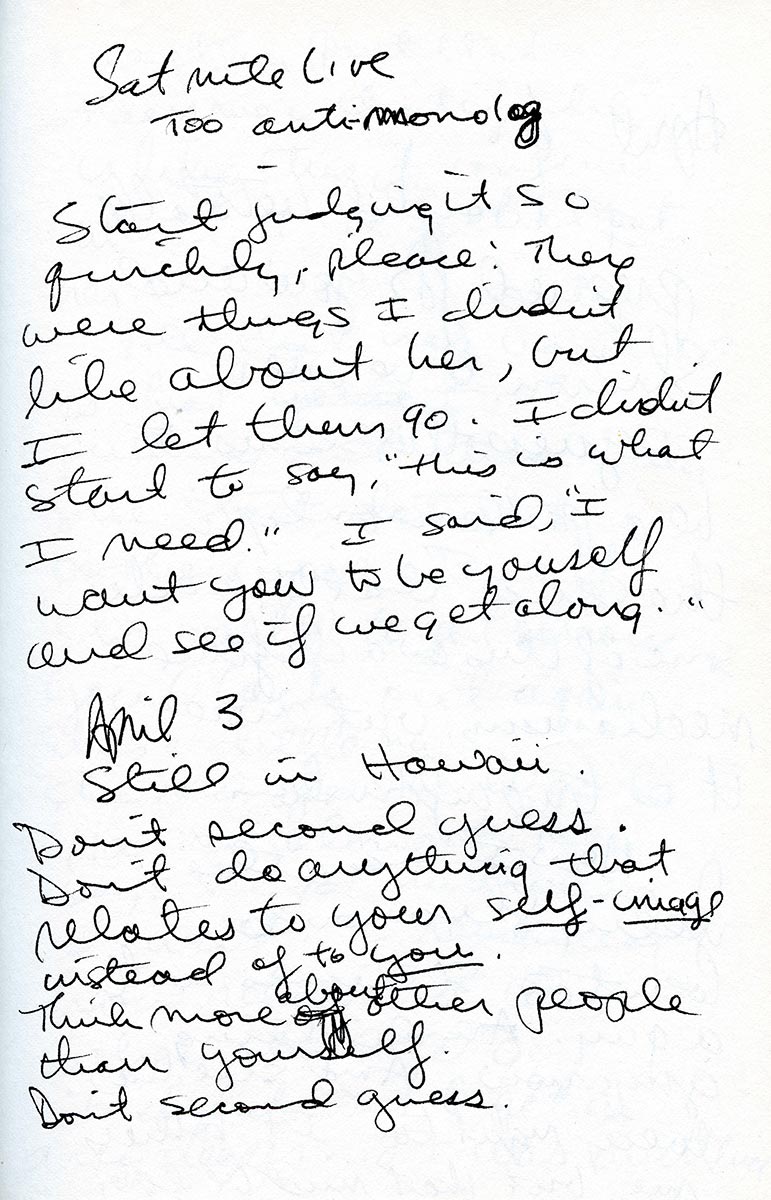 Sat nite Live
Too anti-monolog
–
Start judging it so
quickly, please. There
were things I didn't
like about her, but
I let them go. I didn't
start to say, "this is what
I need." I said, "I
want you to be yourself
and see if we get along."
April 3
Still in Hawaii.
Don't second guess.
Don't do anything that
relates to your self-image
instead of to you.
Think more about other people
than yourself.
Don't second guess.